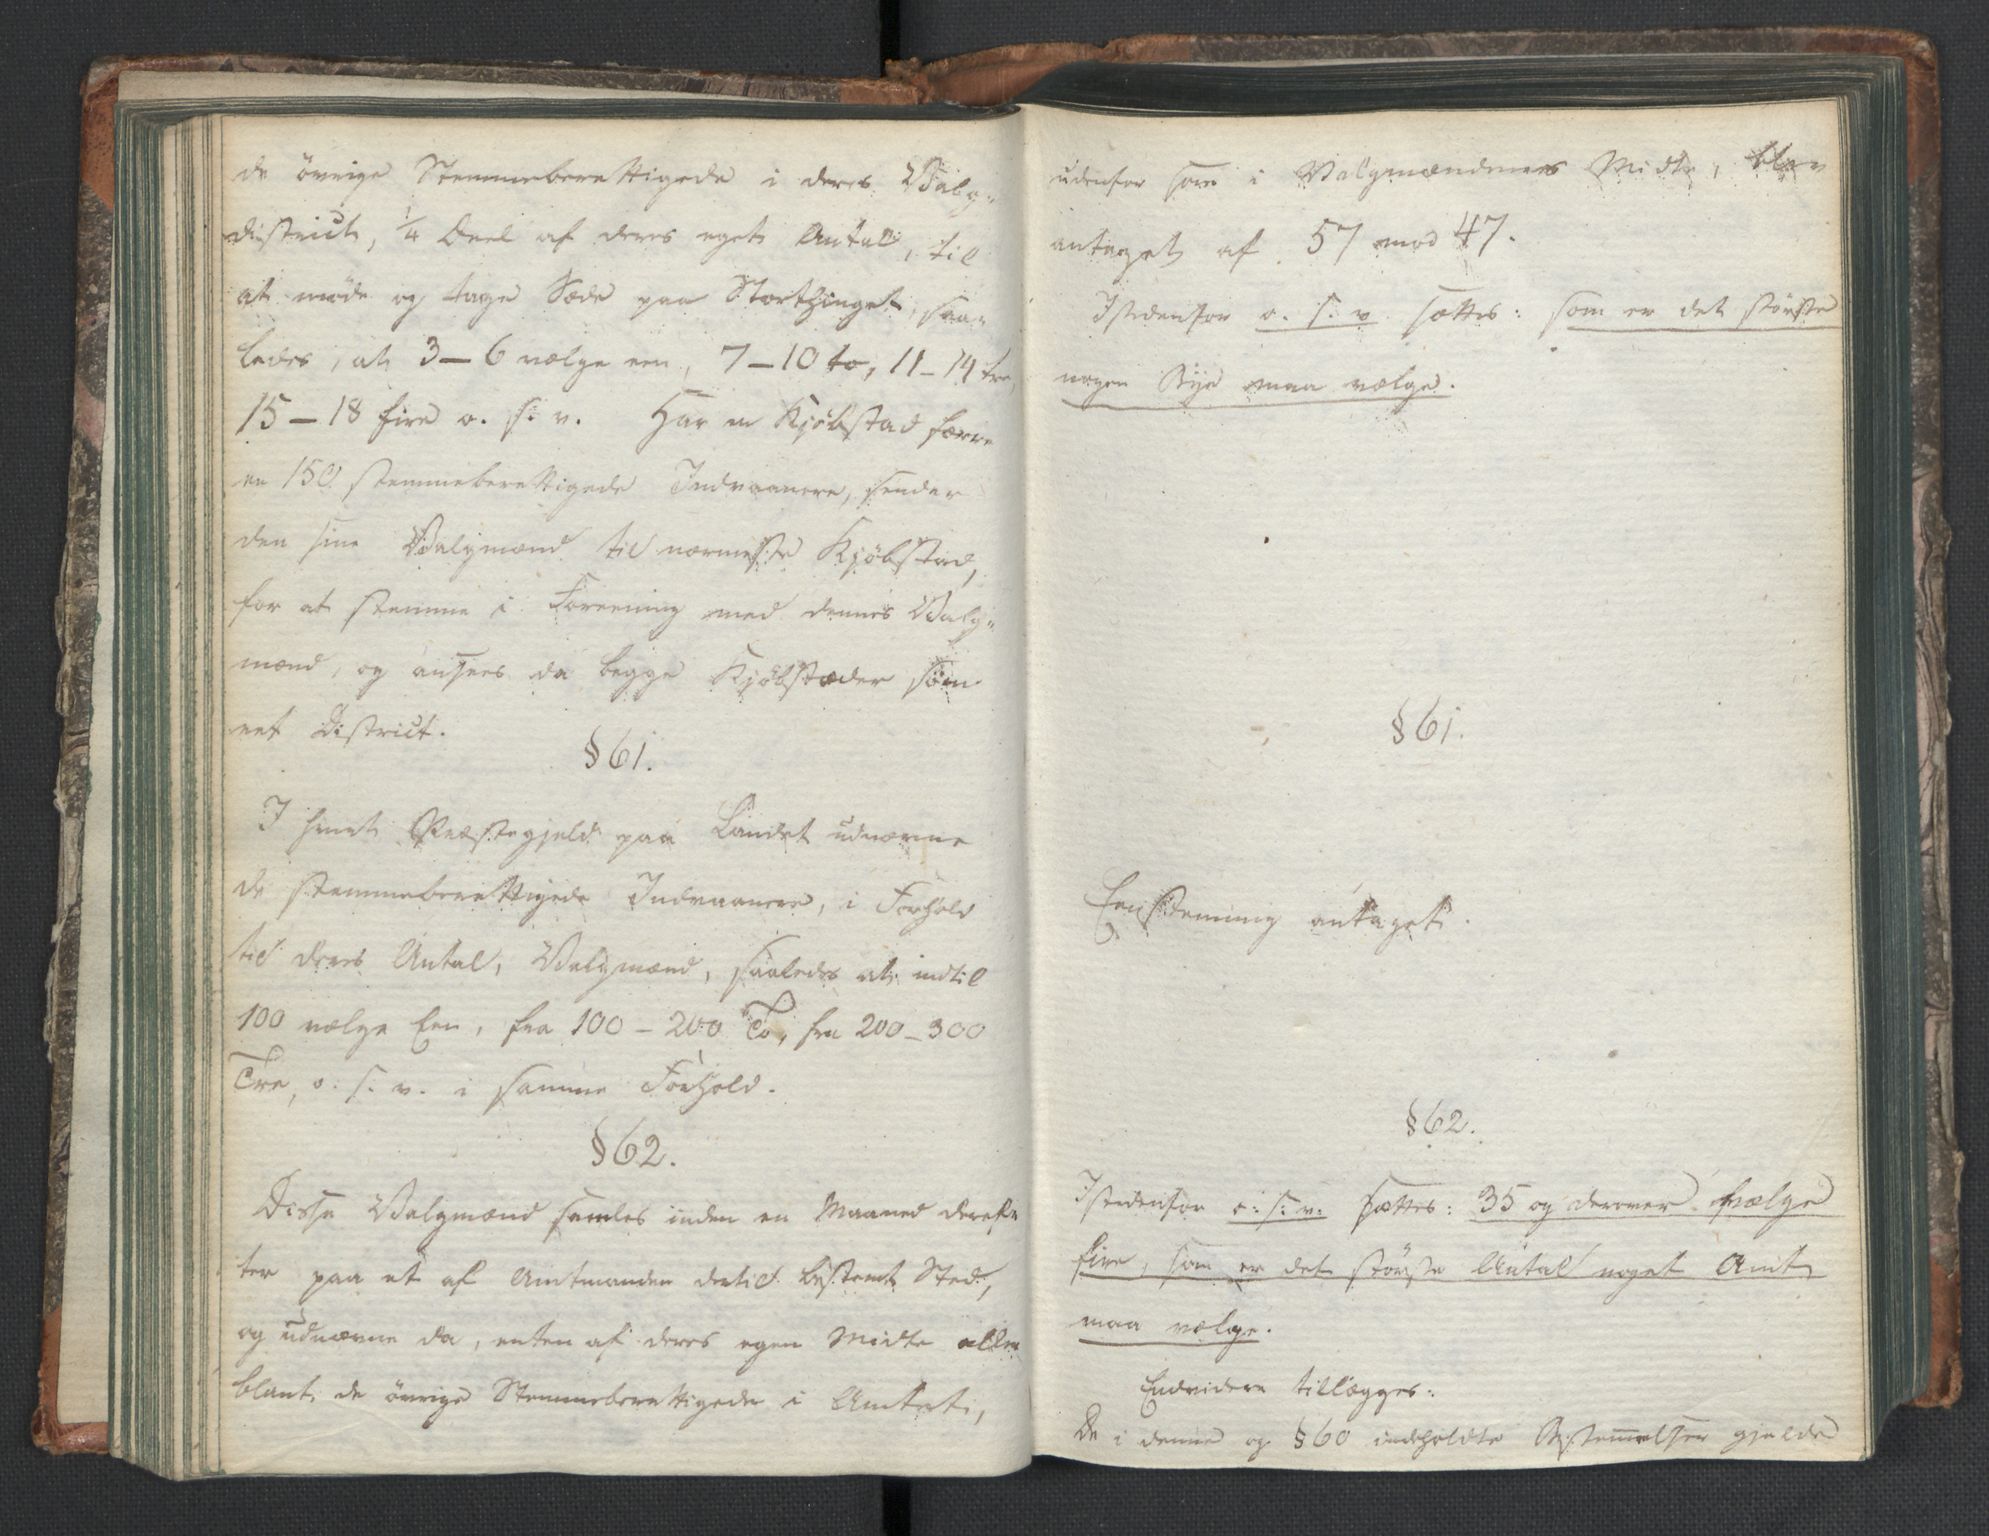 de øvrige Stemmeberettigede i deres Valg-
district, 1/4 Deel af deres eget Antal, til
at møde og tage Sæde paa Storthinget, saa-
ledes, at 3–6 vælge een, 7–10 to, 11–14 tre,
15–18 fire o. s. v. Har en Kjøbstad færre
en 150 stemmeberettigede Indvaanere, sender
den sine Valgmænd til nærmeste Kjøbstad,
for at stemme i Foreening med dennes Valg-
mænd, og ansees da begge Kjøbstæder som
eet District.
§ 61.
I hvert Præstegjeld paa Landet udnævne
de stemmeberettigede Indvaanere, i Forhold
til deres Antal, Valgmænd, saaledes at indtil
100 vælge Een, fra 100–200 To, fra 200–300
Tre, o. s. v. i samme Forhold.
§ 62.
Disse Valgmænd samles inden en Maaned deref-
ter paa et af Amtmanden dertil bestemt Sted,
og udnævne da, enten af deres egen Midte eller
blant de øvrige Stemmeberettigede i Amtet,
udenfor som i Valgmændenes Midte, blev
antaget af 57 mod 47.
Istedenfor o. s. v. sættes: som er det største
nogen Bye maa vælge.
§ 61.
Eenstemmig antaget.
§ 62.
Istedenfor o. s. v. sættes: 35 og derover vælge
fire, som er det største Antal noget Amt
maa vælge.
Endvidere tillægges:
De i denne og § 60 indeholdte Bestemmelser gjelde